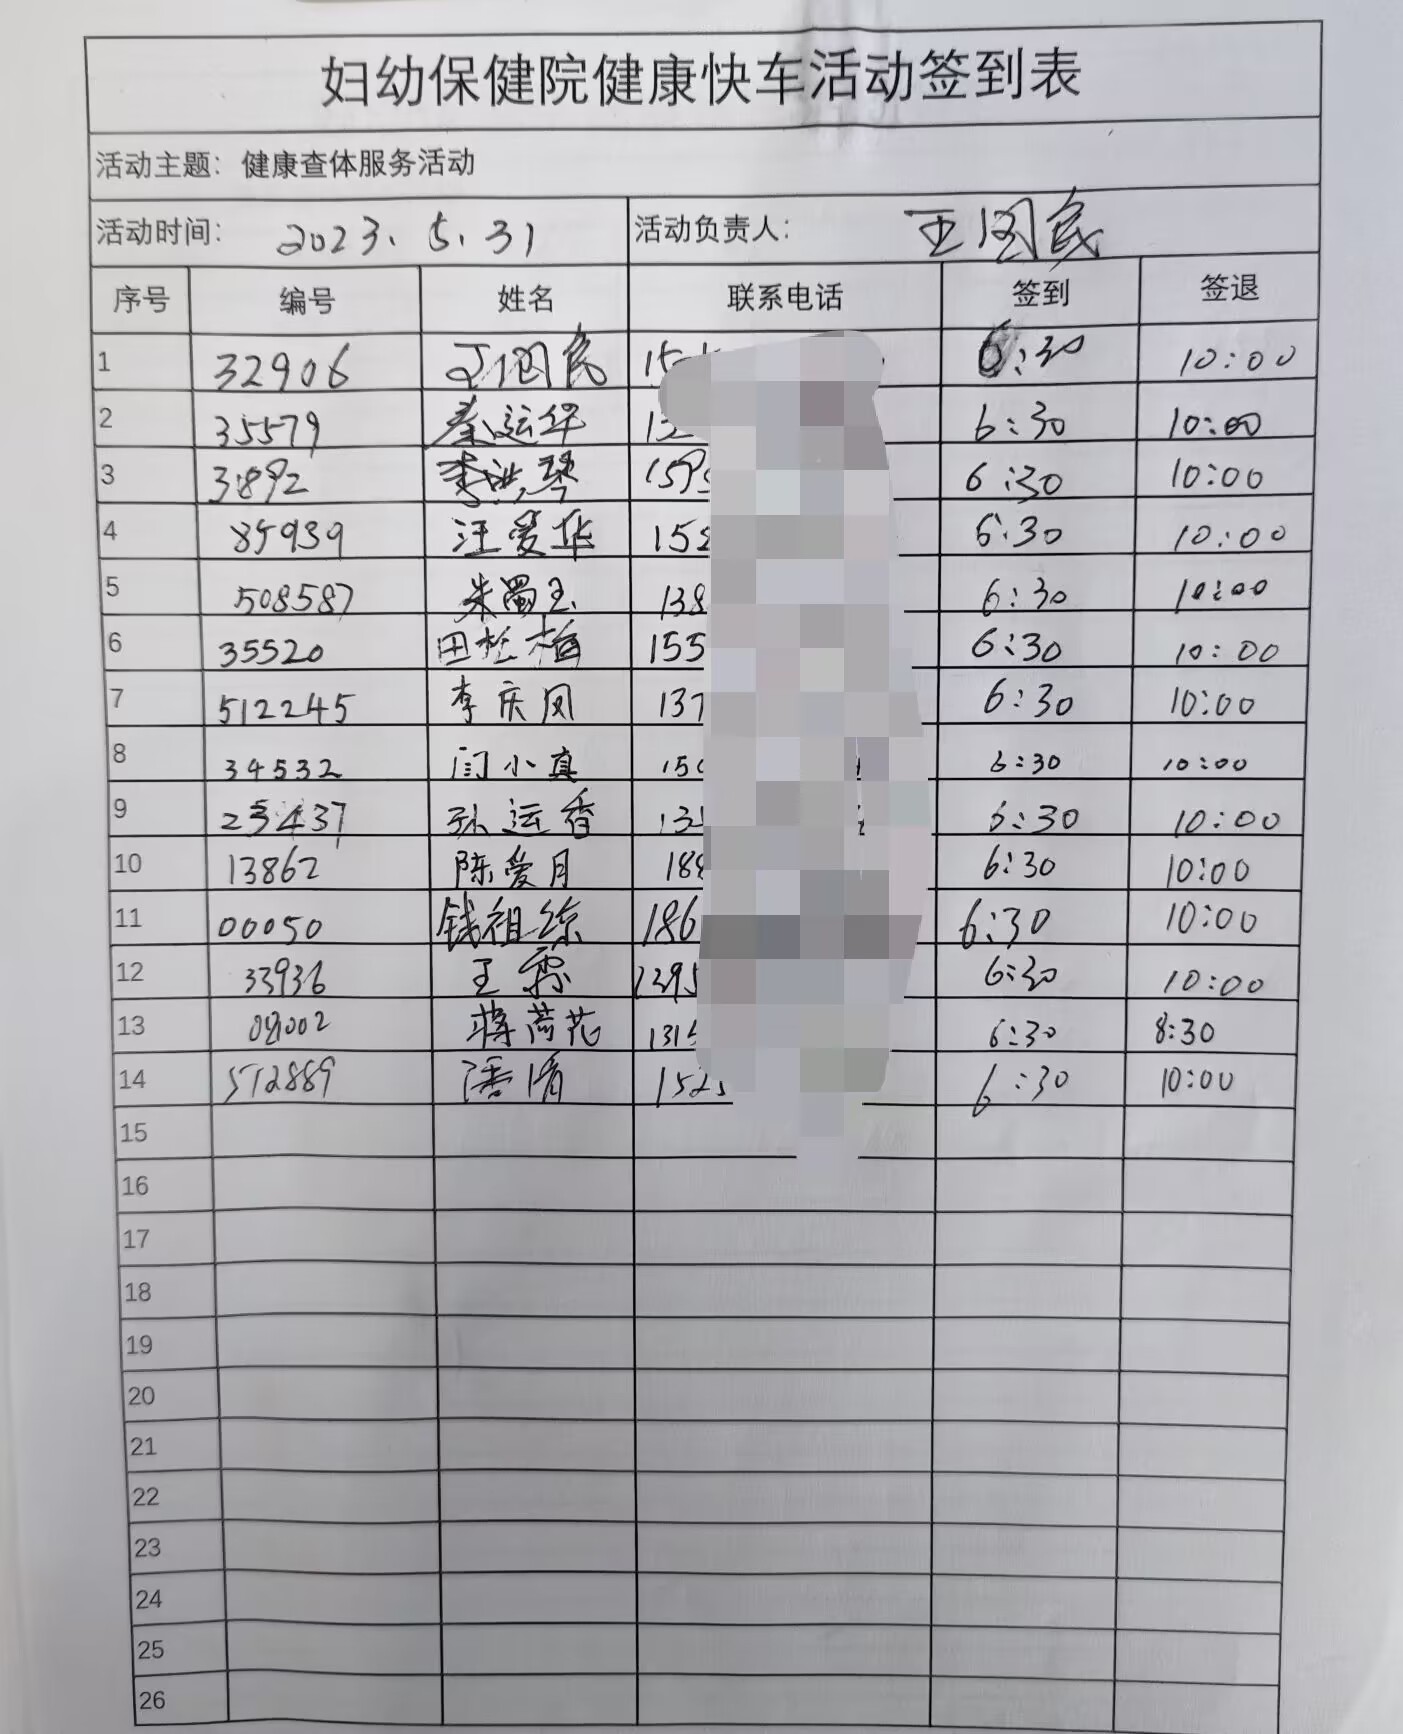 妇幼保健院健康快车活动签到表
活动主题：健康查体服务活动
活动时间： 2023.5.31 活动负责人： 王国民
序号 编号 姓名 联系电话 签到 签退
1 32906 王国民 6:30 10:00
2 35579 秦运华 6:30 10:00
3 31892 李洪琴 159 6:30 10:00
4 85939 汪爱华 152 6:30 10:00
5 508587 朱蜀玉 138 6:30 10:00
6 35520 田桂梅 155 6:30 10:00
7 512245 李庆凤 137 6:30 10:00
8 34532 闫小真 150 6:30 10:00
9 23437 孙运香 13 6:30 10:00
10 13862 陈爱月 188 6:30 10:00
11 00050 钱祖综 186 6:30 10:00
12 33936 王霖 1395 6:30 10:00
13 蒋荷花 1315 6:30 8:30
14 512889 潘倩 152 6:30 10:00
15
16
17
18
19
20
21
22
23
24
25
26